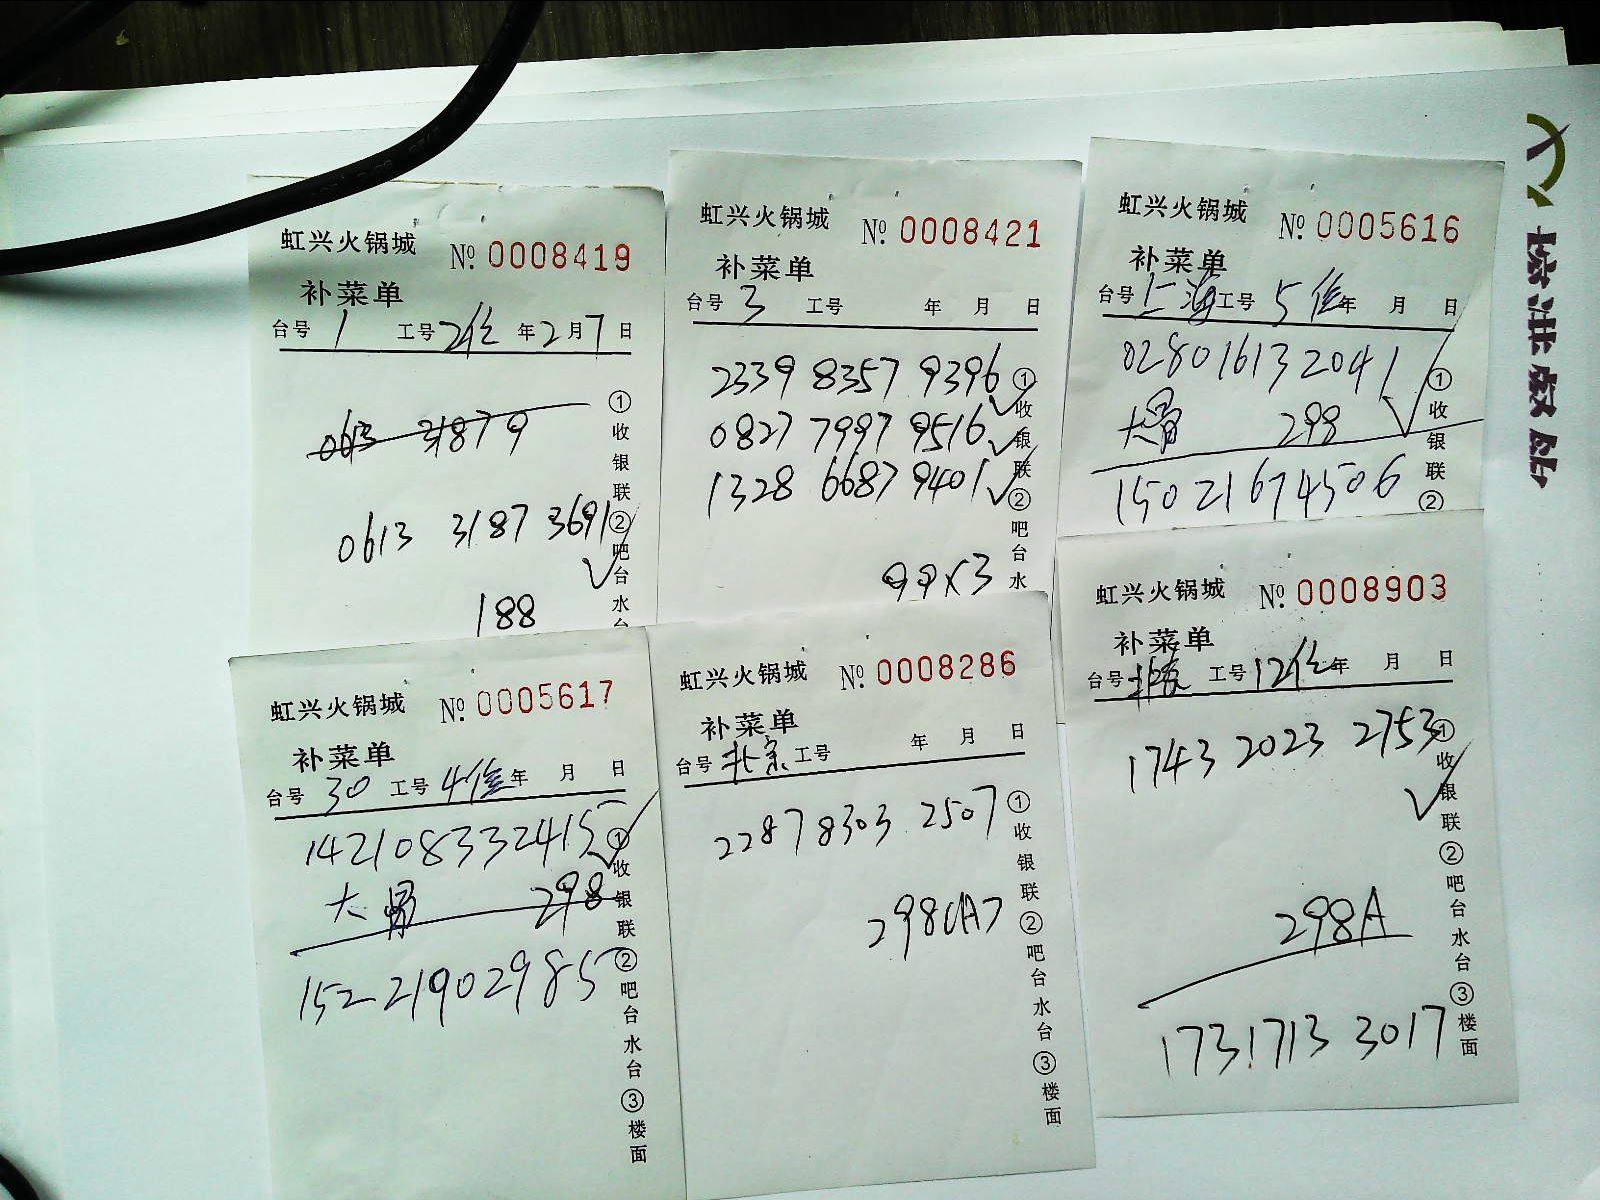 虹兴火锅城 №. 0008419
补菜单
台号 1 工号 2位 年 2 月 7 日
0613 31879
0613 3187 3691
188
①收银联②吧台水台
虹兴火锅城 №. 0008421
补菜单
台号 3 工号 年 月 日
2339 8357 9396
0827 7997 9516
1328 6687 9401
99X3
①收银联②吧台水
虹兴火锅城 №. 0005616
补菜单
台号 上海 工号 5位 年 月 日
028016132041
大骨 298
15021674506
①收银联②
虹兴火锅城 №. 0005617
补菜单
台号 30 工号 4位 年 月 日
142108332415
大骨 298
15221902985
①收银联②吧台水台③楼面
虹兴火锅城 №. 0008286
补菜单
台号 北京 工号 年 月 日
2287 8303 2507
298(A)
①收银联②吧台水台③楼面
虹兴火锅城 №. 0008903
补菜单
台号 北京 工号 12位 年 月 日
1743 2023 2753
298A
1731713 3017
①收银联②吧台水台③楼面